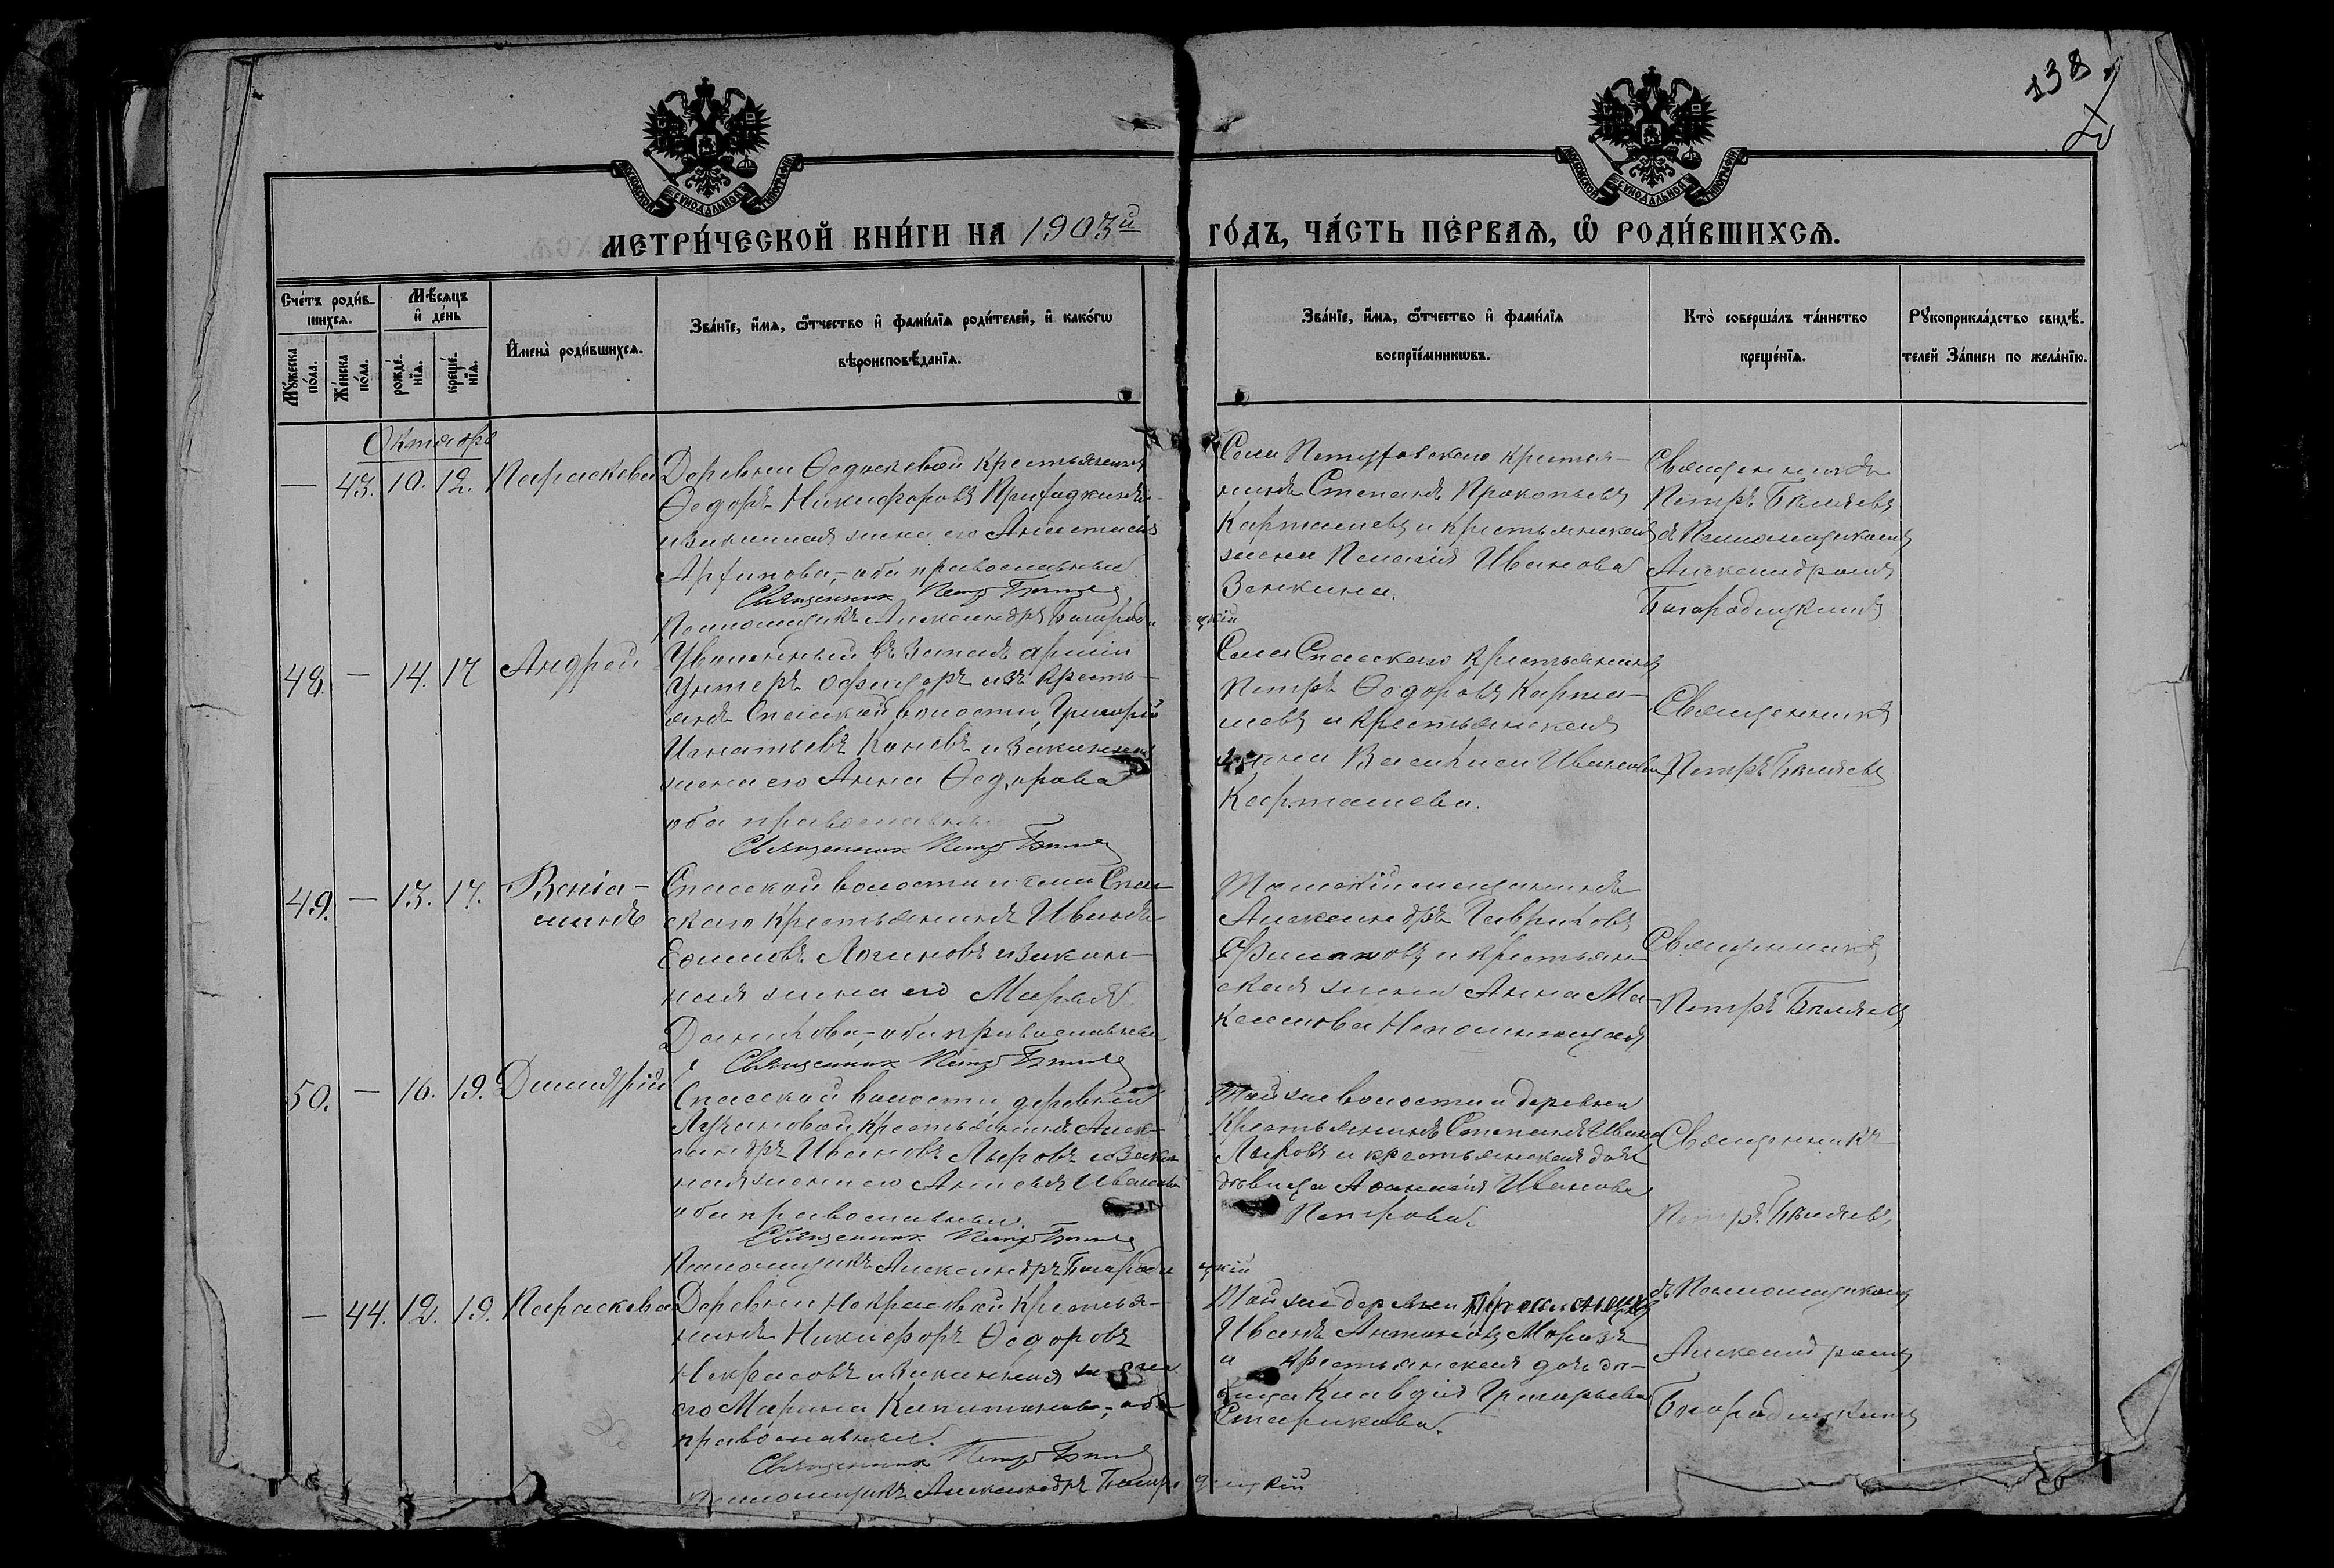 138
МОСКОВСКОЙ СѴНОДАЛЬНОЙ ТИПОГРАФІИ
МОСКОВСКОЙ СѴНОДАЛЬНОЙ ТИПОГРАФІИ
МЕТРИ́ЧЕСКОЙ КНИ́ГИ НА 1903й
ГО́ДЪ, ЧА́СТЬ ПЕ́РВАѦ, Ѽ РОДИ́ВШИХСѦ.
Сче́тъ роди́в-
шихсѧ.
Мꙋ́жеска
по́ла.
Же́нска
по́ла.
Мѣ́сѧцъ
и҆ де́нь
рожде́-
нїѧ.
креще́-
нїѧ.
И҆мена̀ роди́вшихсѧ.
Зва́нїе, и҆́мѧ, ѻ҆́тчество и҆ фами́лїѧ роди́телей, и҆ како́гѡ
вѣроисповѣ́данїѧ.
Зва́нїе, и҆́мѧ, ѻ҆́тчество и҆ фами́лїѧ
воспрїе́мникѡвъ.
Кто̀ соверша́лъ та́инство
креще́нїѧ.
Рꙋкоприкла́дство свидѣ́-
телей За́писи по жела́нїю.
Октябрь
— 43. 10. 12. Параскева
Деревни Ѳедоскевой крестьянинъ
Ѳедоръ Никифоровъ
и законная жена его Анастасія
Архипова, оба православные
Священник Петр Беляев
Псаломщикъ Александръ Богородицкій
Села Петуховскаго крестья-
нинъ Степанъ Прокопьевъ
Карташевъ и крестьянская
жена Пелагія Иванова
Зенкина.
Священникъ
Петръ Бѣляевъ
съ Псаломщикомъ
Александромъ
Богородицкимъ
48. — 14. 17 Андрей
Уволенный въ запасъ арміи
Унтеръ офицеръ изъ кресть-
янъ Спасской волости, Григорій
Игнатьевъ Коневъ и законная
жена его Анна Ѳедорова
оба православные
Священник Петр Беляев
Села Спасскаго крестьянинъ
Петръ Ѳедоровъ Карта-
шевъ и крестьянская
жена Василиса Иванова
Карташева.
Священникъ
Петръ Бѣляевъ
49. — 13. 17. Веніа-
минъ
Спасской волости и села Спас-
скаго крестьянинъ Иванъ
Еѳимовъ Логиновъ и закон-
ная жена его Марія
Данилова, оба православные
Священник Петр Беляев
Томскій мещанинъ
Александръ Гавриловъ
Филимоновъ и крестьян-
ская жена Анна Ма-
ксимова Непомнющая
Священникъ
Петръ Бѣляевъ
50. — 16. 19. Димитрій
Спасской волости деревни
Лучановой крестьянинъ Алек-
сандръ Ивановъ Лыровъ и закон-
ная жена его Анисья Иванова
оба православные.
Священник Петр Беляев
Псаломщикъ Александръ Богородицкій
Той же волости и деревни
Крестьянинъ Степанъ Ивановъ
Лыровъ и крестьянская дочь
дѣвица Аѳанасія Иванова
Петрова
Священникъ
Петръ Бѣляевъ
— 44. 12. 19. Параскева
Деревни Некрасовой крестья-
нинъ Никифоръ Ѳедоровъ
Некрасовъ и законная жена
его Марина Капитонова, оба
православные.
Священник Петр Беляев
Псаломщикъ Александръ Богородицкій
Той же деревни крестьянинъ
Иванъ Антоновъ Морозъ
и крестьянская дочь дѣ-
вица Клавдія Григорьева
Старикова.
съ Псаломщикомъ
Александромъ
Богородицкимъ